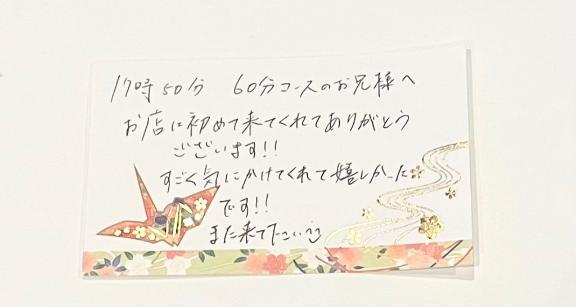 17時50分 60分コースのお兄様へ
お店に初めて来てくれてありがとう
ございます!!
すごく気にかけてくれて嬉しかった
です!!
また来て下さい